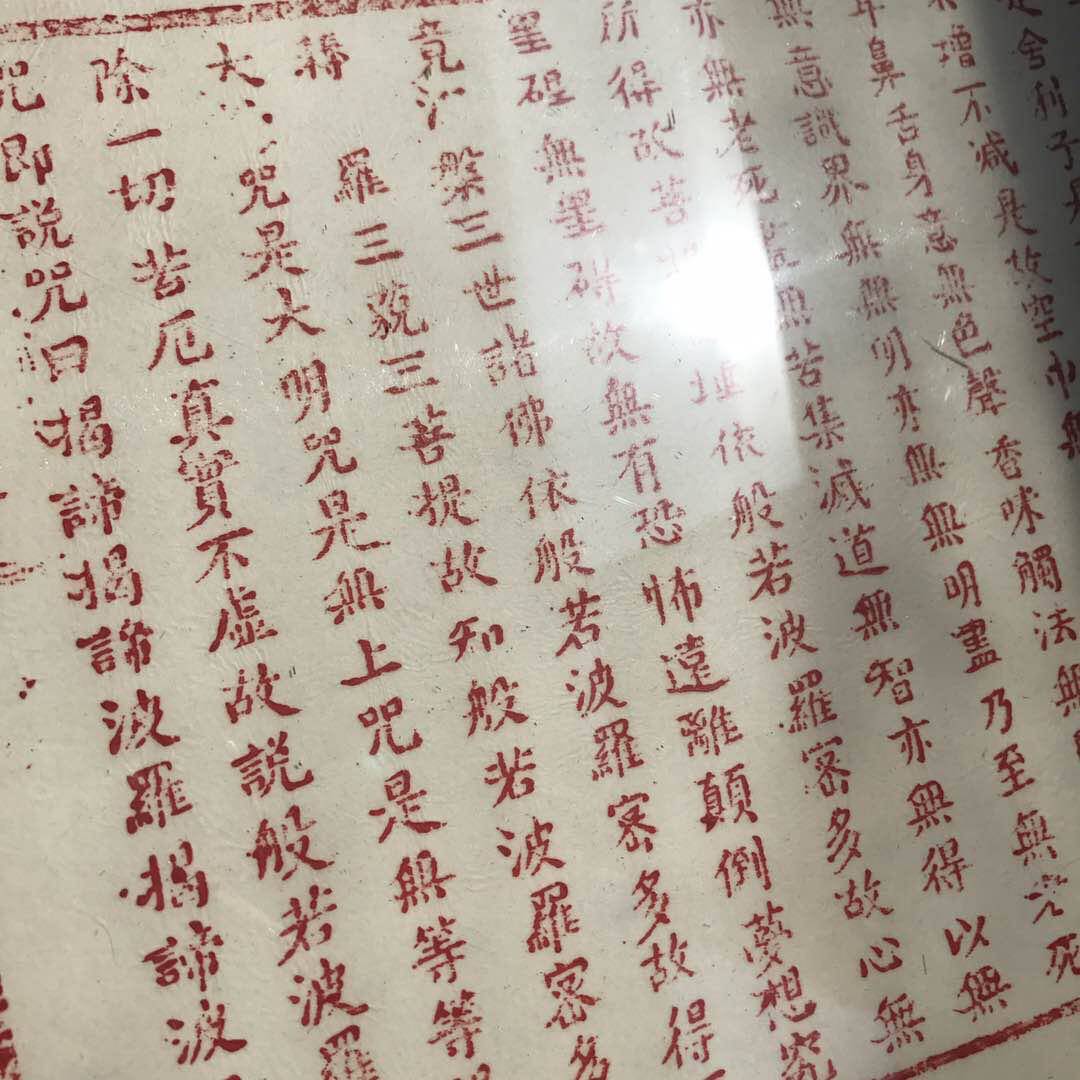 舍利子是
增不減是故空中無
耳鼻舌身意無色聲香味觸法無
無意識界無無明亦無無明盡乃至無老死
亦無老死無苦集滅道無智亦無得以無
所得故菩埵依般若波羅密多故心無
罣碍無罣碍故無有恐怖遠離顛倒夢想究
竟槃三世諸佛依般若波羅密多故得
耨羅三藐三菩提故知般若波羅密多
大咒是大明咒是無上咒是無等等咒
除一切苦厄真實不虛故説般若波羅
咒即説咒曰揭諦揭諦波羅揭諦波